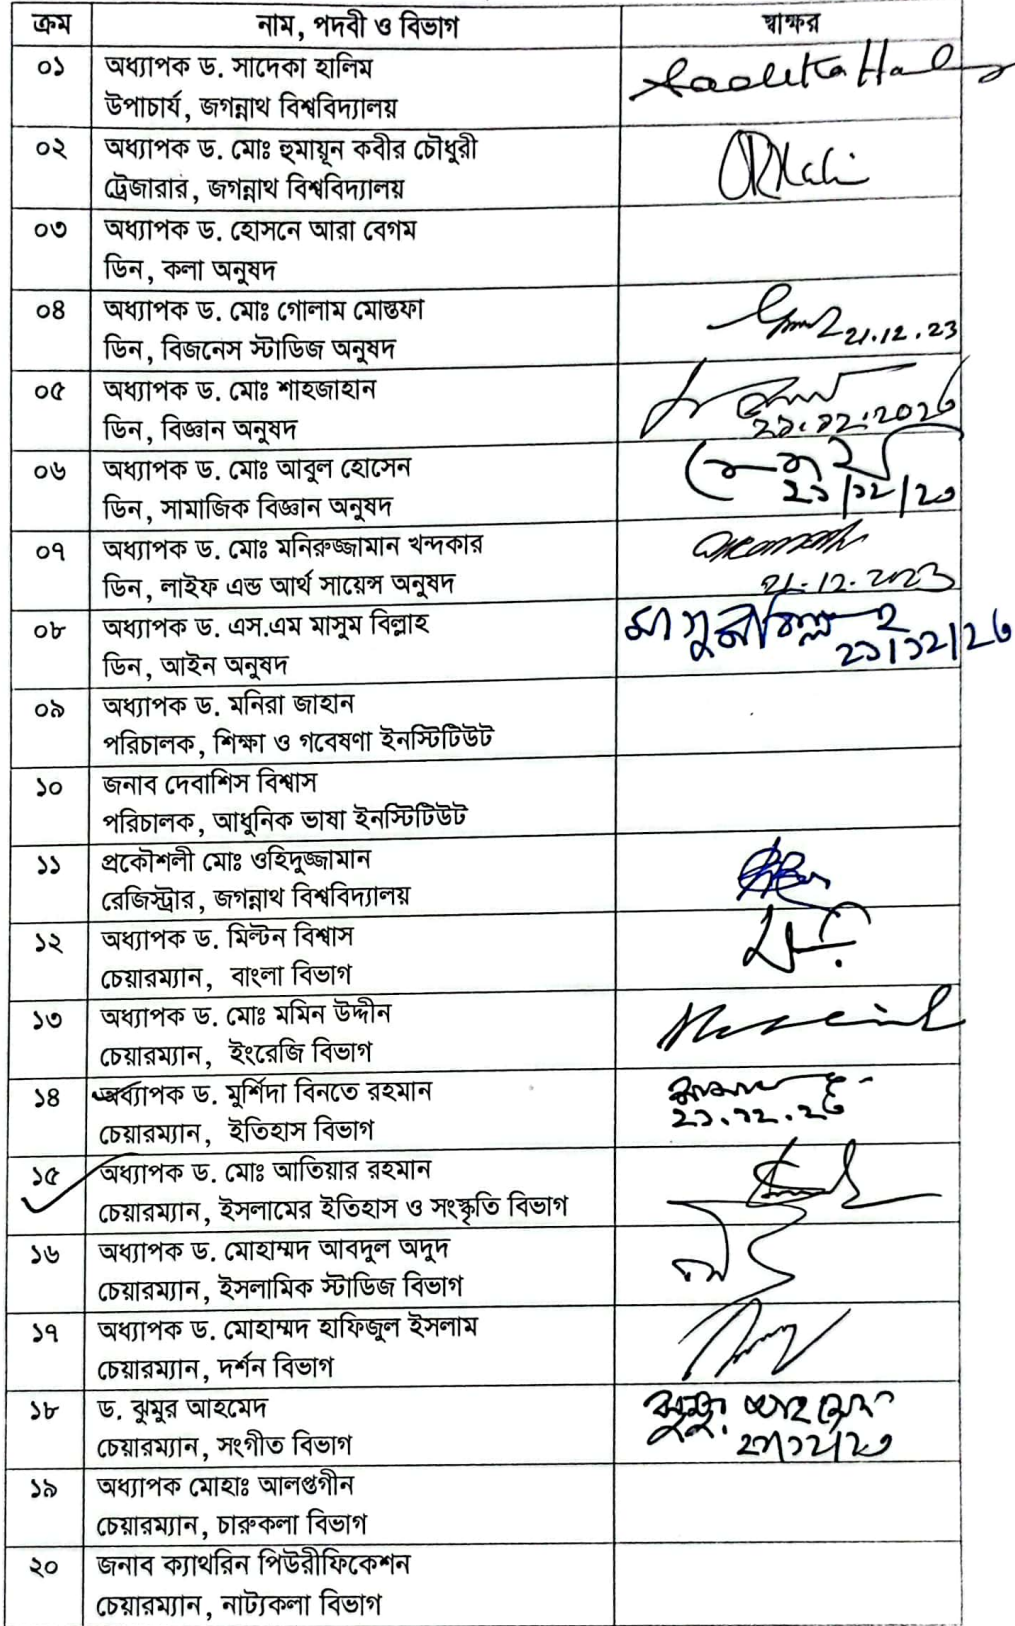 ক্রম নাম, পদবী ও বিভাগ স্বাক্ষর
০১ অধ্যাপক ড. সাদেকা হালিম
উপাচার্য, জগন্নাথ বিশ্ববিদ্যালয়
০২ অধ্যাপক ড. মোঃ হুমায়ূন কবীর চৌধুরী
ট্রেজারার, জগন্নাথ বিশ্ববিদ্যালয়
০৩ অধ্যাপক ড. হোসনে আরা বেগম
ডিন, কলা অনুষদ
০৪ অধ্যাপক ড. মোঃ গোলাম মোস্তফা
ডিন, বিজনেস স্টাডিজ অনুষদ
21.12.23
০৫ অধ্যাপক ড. মোঃ শাহজাহান
ডিন, বিজ্ঞান অনুষদ
২১.১২.২০২৩
০৬ অধ্যাপক ড. মোঃ আবুল হোসেন
ডিন, সামাজিক বিজ্ঞান অনুষদ
২১/১২/২৩
০৭ অধ্যাপক ড. মোঃ মনিরুজ্জামান খন্দকার
ডিন, লাইফ এন্ড আর্থ সায়েন্স অনুষদ
21.12.2023
০৮ অধ্যাপক ড. এস.এম মাসুম বিল্লাহ
ডিন, আইন অনুষদ
২১/১২/২৩
০৯ অধ্যাপক ড. মনিরা জাহান
পরিচালক, শিক্ষা ও গবেষণা ইনস্টিটিউট
১০ জনাব দেবাশিস বিশ্বাস
পরিচালক, আধুনিক ভাষা ইনস্টিটিউট
১১ প্রকৌশলী মোঃ ওহিদুজ্জামান
রেজিস্ট্রার, জগন্নাথ বিশ্ববিদ্যালয়
১২ অধ্যাপক ড. মিল্টন বিশ্বাস
চেয়ারম্যান, বাংলা বিভাগ
১৩ অধ্যাপক ড. মোঃ মমিন উদ্দীন
চেয়ারম্যান, ইংরেজি বিভাগ
১৪ অধ্যাপক ড. মুর্শিদা বিনতে রহমান
চেয়ারম্যান, ইতিহাস বিভাগ
২১.১২.২৩
১৫ অধ্যাপক ড. মোঃ আতিয়ার রহমান
চেয়ারম্যান, ইসলামের ইতিহাস ও সংস্কৃতি বিভাগ
১৬ অধ্যাপক ড. মোহাম্মদ আবদুল অদুদ
চেয়ারম্যান, ইসলামিক স্টাডিজ বিভাগ
১৭ অধ্যাপক ড. মোহাম্মদ হাফিজুল ইসলাম
চেয়ারম্যান, দর্শন বিভাগ
১৮ ড. ঝুমুর আহমেদ
চেয়ারম্যান, সংগীত বিভাগ
২১/১২/২৩
১৯ অধ্যাপক মোহাঃ আলপ্তগীন
চেয়ারম্যান, চারুকলা বিভাগ
২০ জনাব ক্যাথরিন পিউরীফিকেশন
চেয়ারম্যান, নাট্যকলা বিভাগ